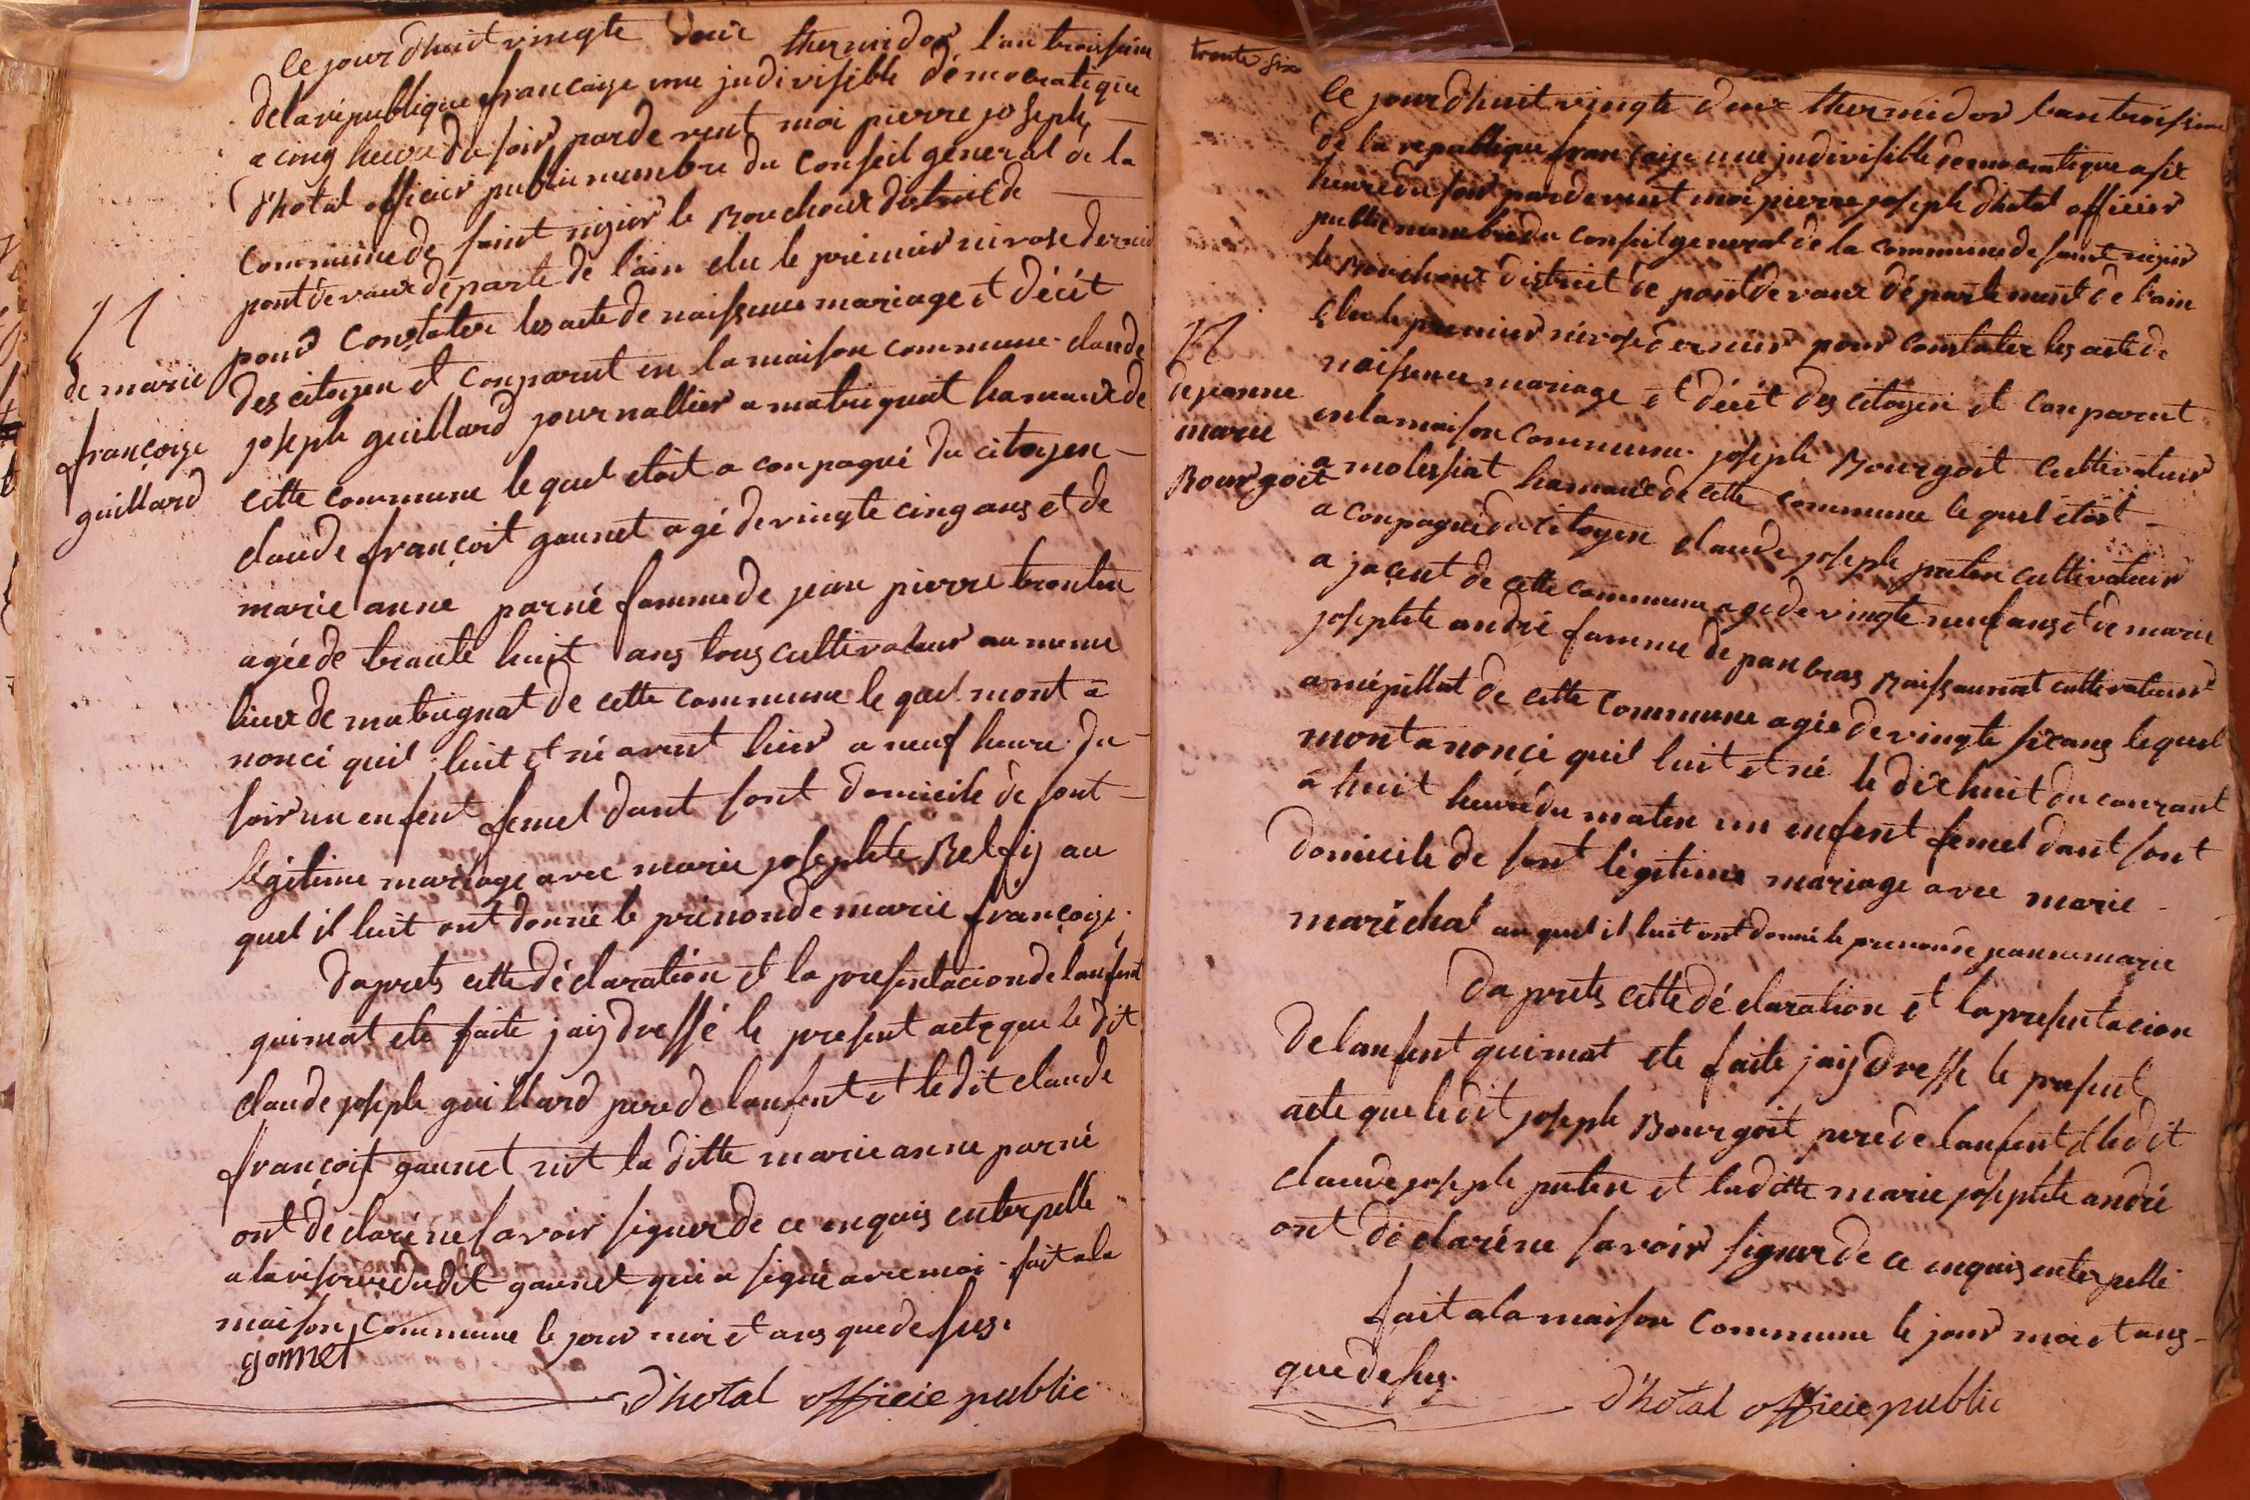 ce jourd'huit vingte deux thermidor l'an troisième
de la république françaize une jndivisible démocratique
a cinq heure du soir pardevent moi pierre joseph
d'hotal officier public membre du conseil general de la
commune de saint nizier le Bouchoux district de
pontdevaux départe de l'ain elu le premier nivose dernier
pour constater les acte de naissence mariage et décét
des citoyen et conparut en la maison commune claude
joseph guillard journallier a matrignat hamaux de
cette commune le quel étoit a conpagné du citoyen
claude françoit gaunet agé de vingte cinq ans et de
marie anne parné famme de jean pierre
agée de trante huit ans tous cultivateur au meme
lieux de matrignat de cette commune le quel mont a
noncé quil luit et né avent hier a neuf heure du
soir un enfent femel dant sont domicile de sont
légitime mariage avec marie josephte Belfij au
quel il luit ont donné le prénon de marie françoize
daprets cette déclaration et la presentacion de lanfent
qui mat ete faite jaij dressé le present acte que le dit
claude joseph guillard pere de lanfent et le dit claude
françoit gaunet nit la ditte marie anne parné
ont déclaré ne savoir signer de ce enquis enterpellé
a la réserve du dit gaunet qui a signé avec moi fait a la
maison commune le jour moi et ans que de sus
gonnet
d'hotal officie public
11
de marie
françoize
guillard
trente six
ce jourd'huit vingte deux thermidor l'an troisime
de la republique françaize une jndivisible democratique a six
heure du soir pardevent moi pierre joseph d'hotal officier
public membre du conseil general de la commune de saint nizier
le Bouchoux district de pontdevaux département de l'ain
elu le premier nivose dernier pour constater les acte de
naissence mariage et décét des citoyen et conparut
en la maison commune joseph Bourgoit cultivateur
a molessiat hamaux de cette commune le quel étoit
a conpagné du citoyen claude joseph puten cultivateur
a jacent de cette commune agé de vingte neuf ans et de marie
josephte andré famme de pancras Baissaunat cultivateur
a mépillat de cette commune agée de vingte six ans le quel
mont a noncé quil luit et né le dix huit du courant
a huit heure du maten un enfent femel dant sont
domicile de sont légitime mariage avec marie
maréchal au quel il luit ont donné le prenon de jeanne marie
daprets cette déclaration et la presentacion
de lanfent qui mat ete faite jaij dresse le present
acte que le dit joseph Bourgoit pere de lanfent et le dit
claude joseph puten et la ditte marie josephte andré
ont déclaré ne savoir signer de ce enquis enterpellé
fait a la maison commune le jour moi et ans
que de sus
d'hotal officie public
de jeanne
marie
Bourgoit